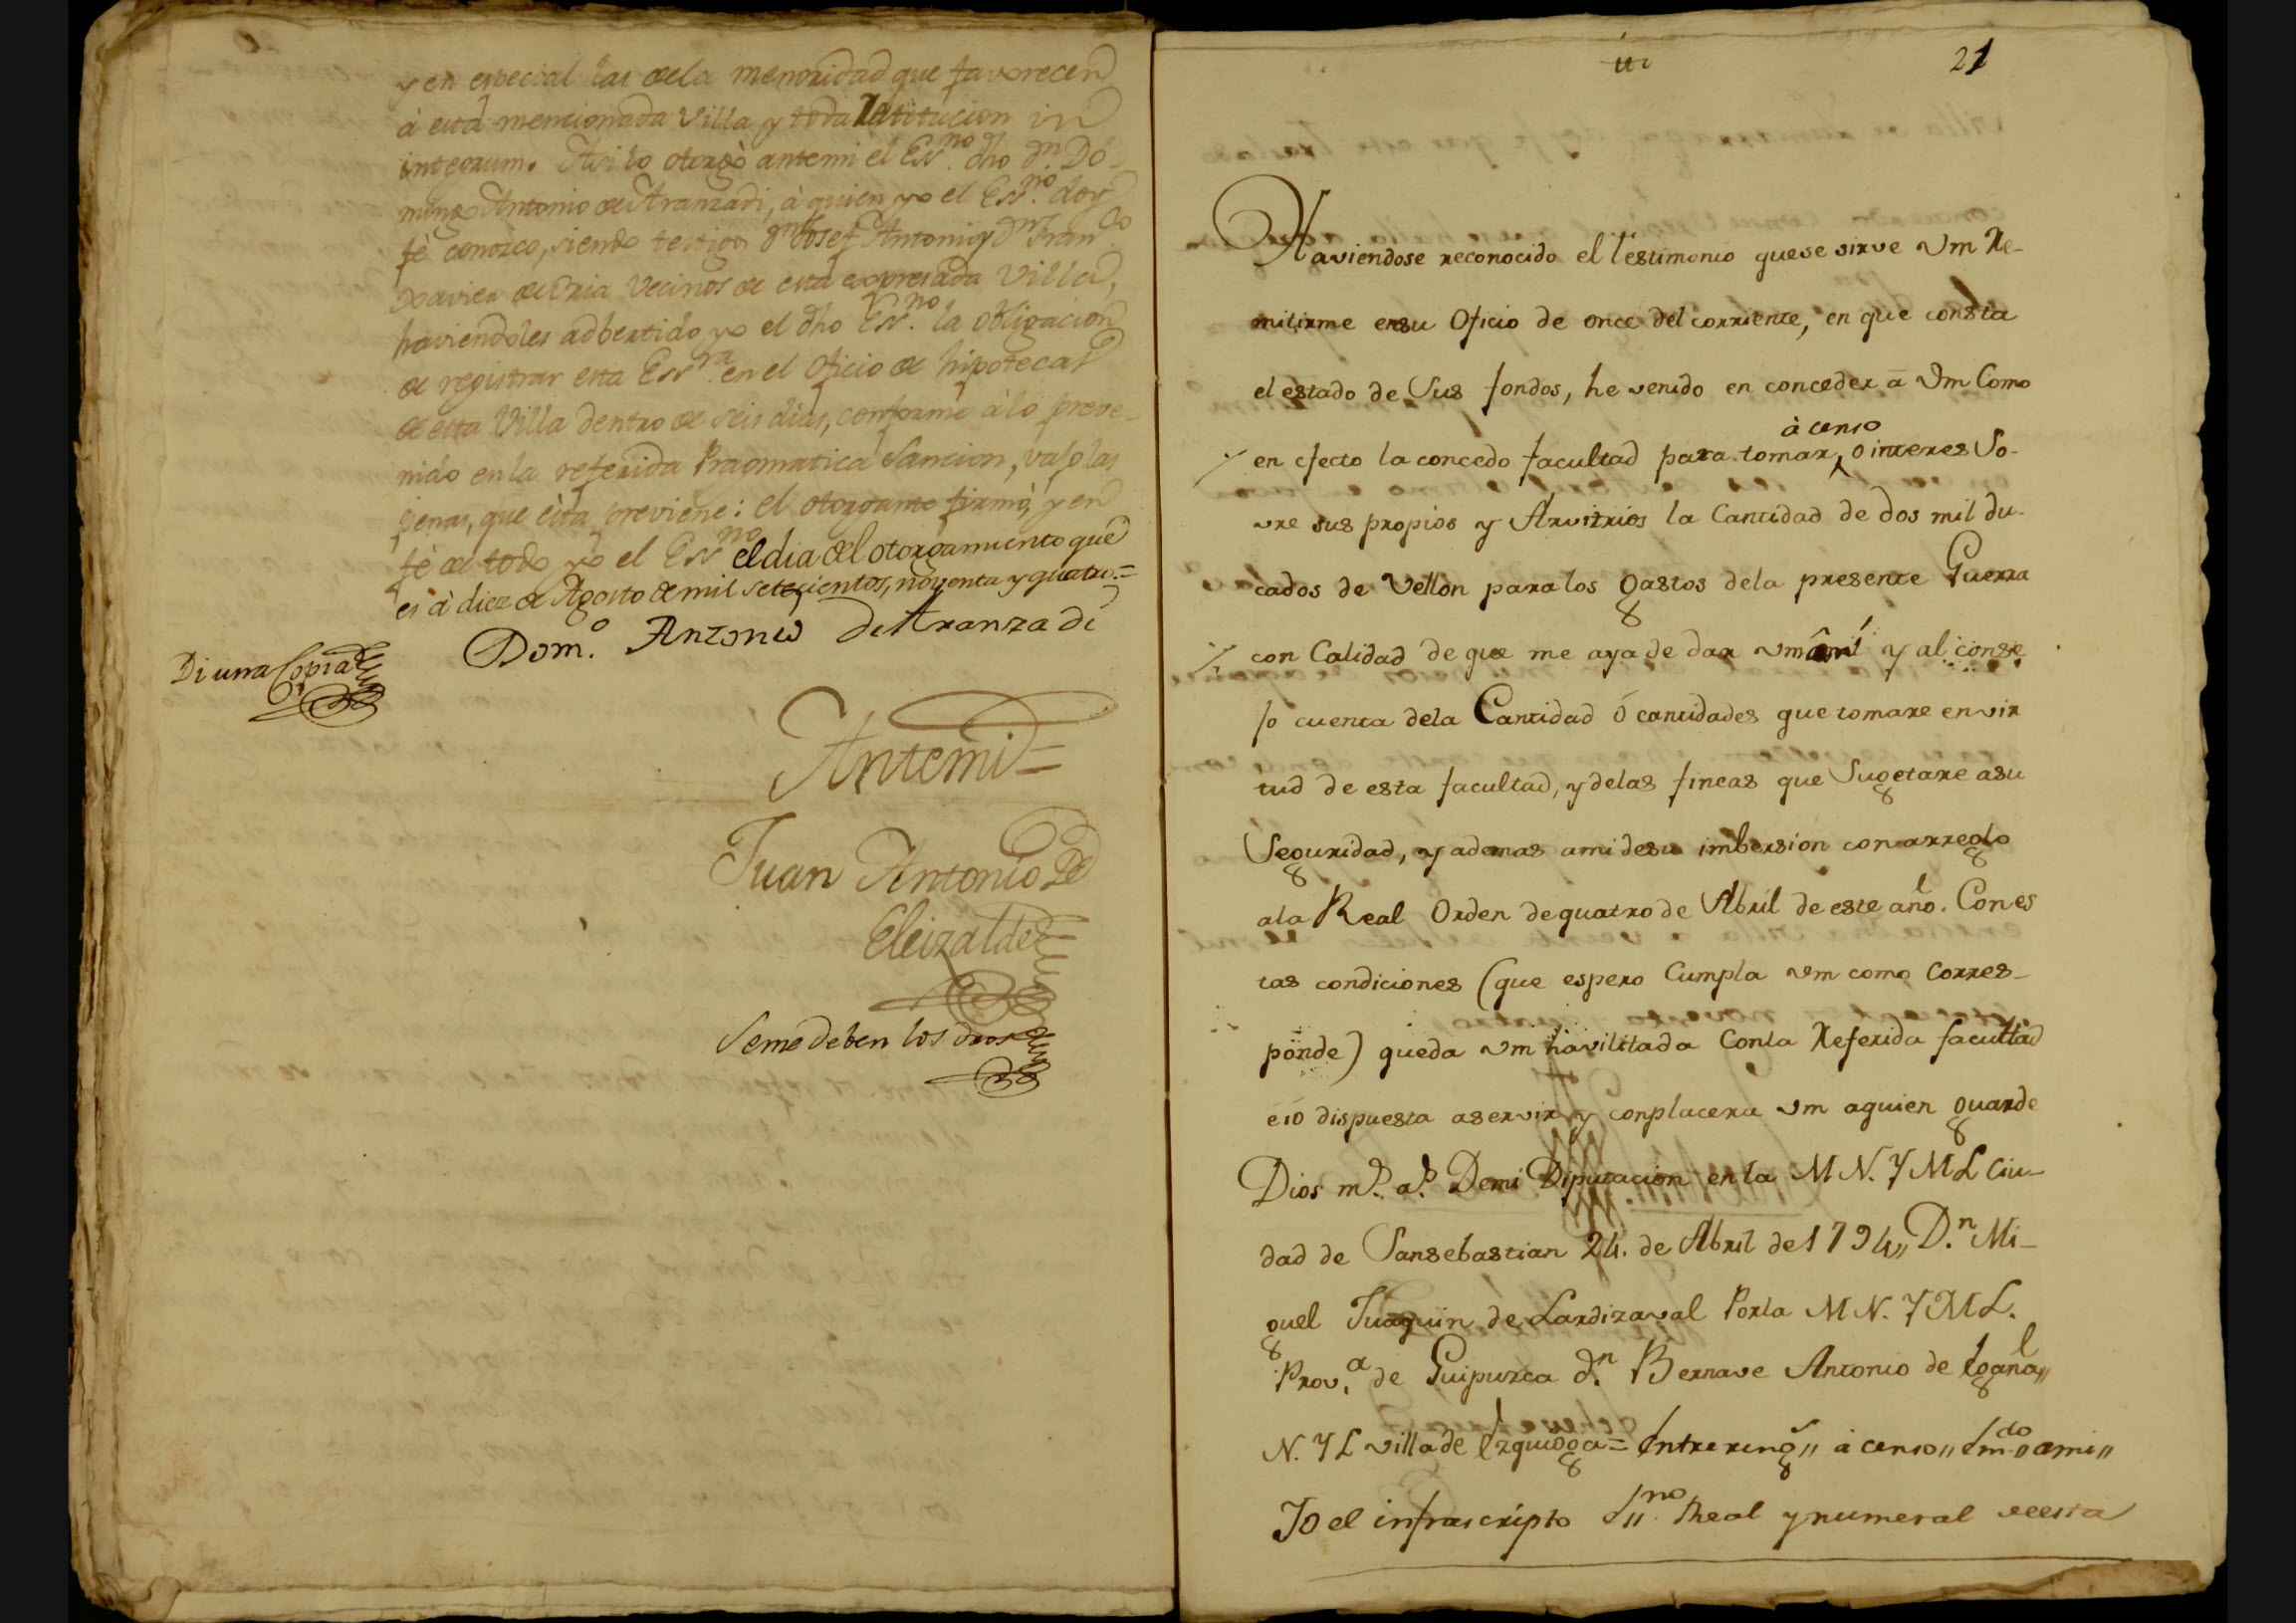 y en especial las de la menoridad que favorecen
à esta mencionada Villa y toda restitucion in
integrum. Asi lo otorgò antemi el Esṅo. dho dn. Do-
mingo Antonio de Aranzadi, à quien yo el Esno. doy
fè conozco, siendo testigos dn Josef Antonio y Dn Franco
Xavier de Oria Vecinos de esta expresada Villa,
haviendoles adbertido yo el dho Esno. la obligacion
de registrar esta Essra. en el Oficio de hipotecas
de esta Villa dentro de seis dias, conforme à lo preve-
nido en la referida Pragmatica Sancion, vajo las
penas, que èsta previene: el otorgante firmò, y en
fè de todo yo el Essno el dia del otorgamiento que
es à diez de Agosto de mil setecientos, noventa y quatro.=
Domo. Antonio de Aranzadi
Di una Copia
Antemi=
Juan Antonio De
Eleizalde
Seme deben los dros
21
Haviendose reconocido el testimonio quese sirve Vm Re-
mitirme ensu Oficio de once del corriente, en que consta
el estado de Sus fondos, he venido en conceder a Vm Como
à censo
en efecto la concedo facultad para tomar, o interes So-
vre sus propios y Arvitrios la Cantidad de dos mil du-
cados de Vellon para los gastos dela presente Guerra
con Calidad de que me aya de dar vm ami y al conse
jo cuenta dela Cantidad ó cantidades que tomare en vir
tud de esta facultad, y delas fincas que Sugetare asu
Seguridad, y ademas ami desu imbersion con arreglo
ala Real Orden de quatro de Abril de este año. Con es
tas condiciones (que espero Cumpla vm como Corres-
ponde) queda vm havilitada Conla Referida facultad
é io dispuesta aservir y conplacer a vm aquien guarde
Dios ms. as. Demi Diputacion en la M N. Y M L Ciu-
dad de Sansebastian 24. de Abril de 1794,, D.n Mi-
guel Juaquin de Lardizaval Porla M N. Y M L.
Prov.a de Guipuzca d.n Bernave Antonio de Egaña,,
N. Y L villa de Ezquioga= Entrereng.s,, à censo,, Emdo ami,,
Jo el infrascripto Esno. Real y numeral deesta